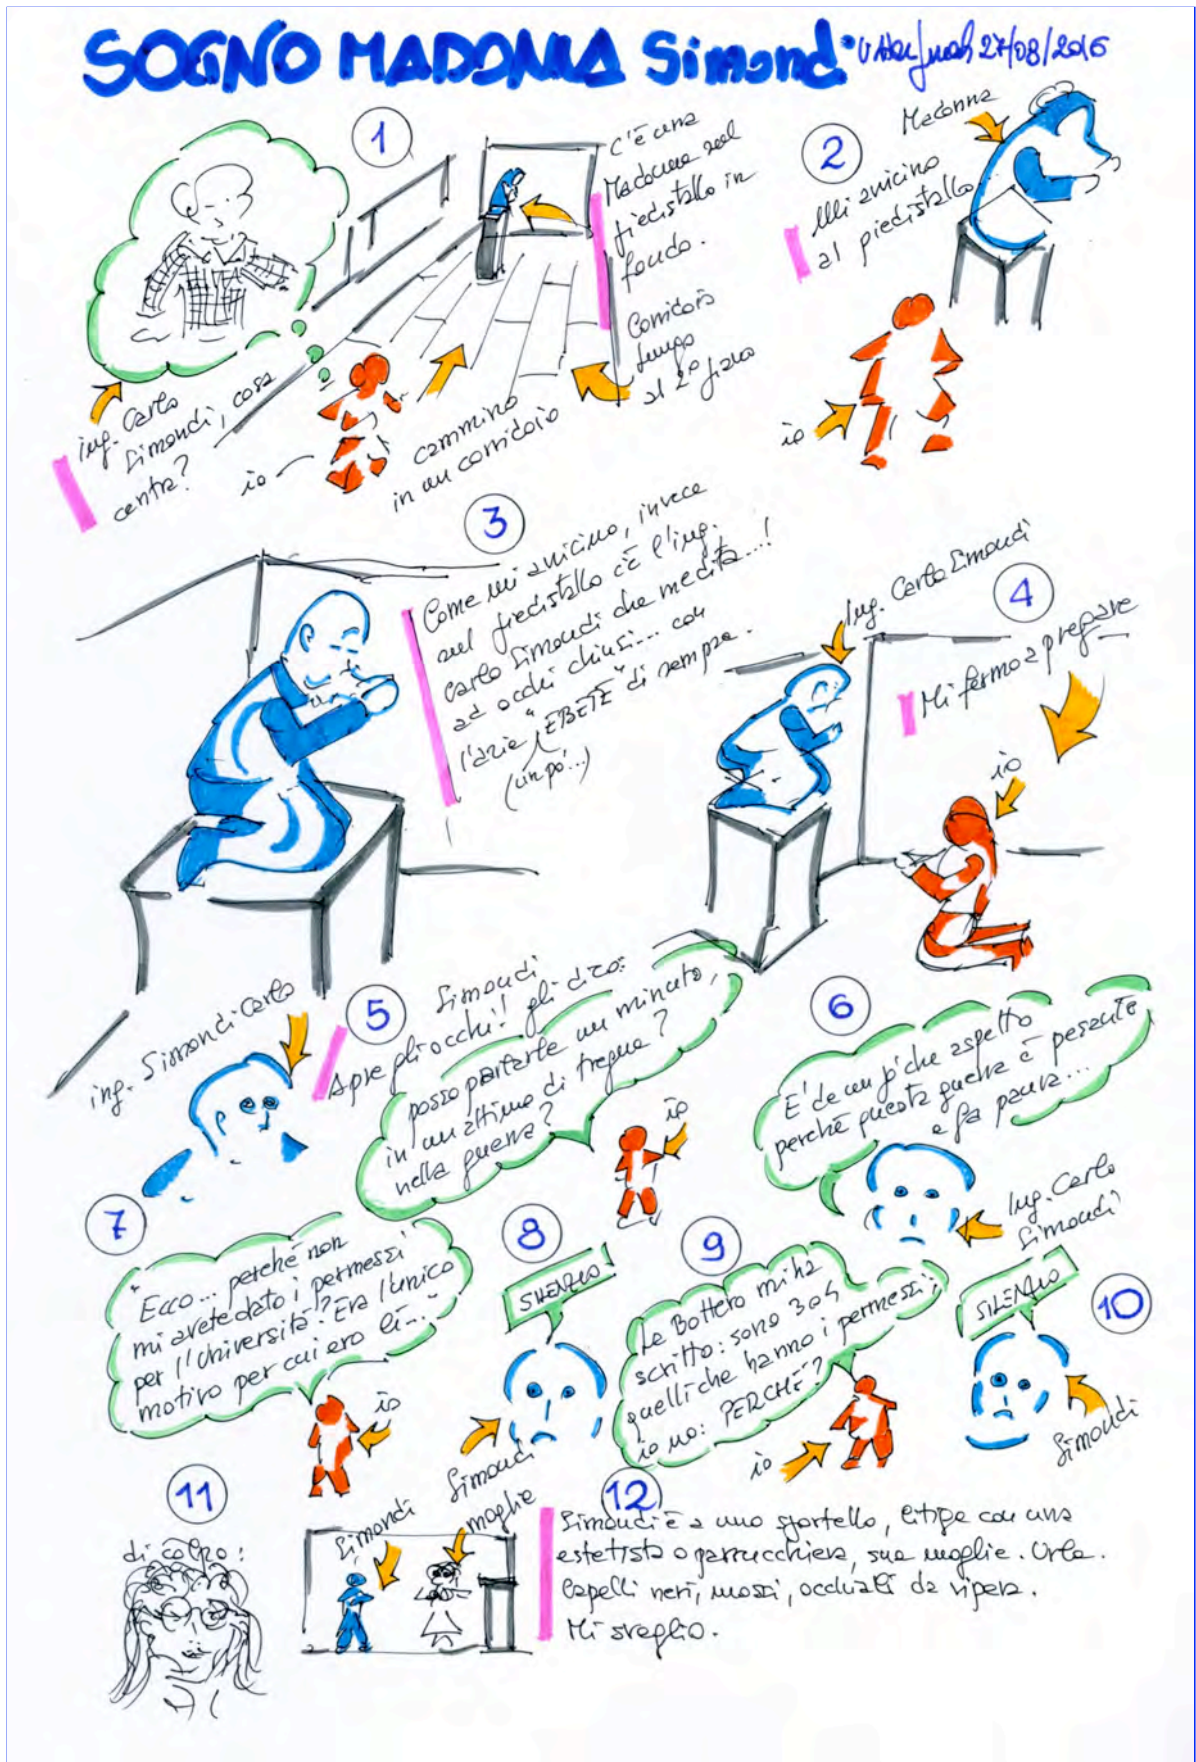 SOGNO MADONNA Simond.
27/08/2016
1
C'è una
Madonna sul
piedistallo in
fondo.
Corridoio
lungo
al 2° piano
ing. Carlo
Simondi, cosa
centra?
io
cammino
in un corridoio
2
Madonna
Mi avvicino
al piedistallo
io
3
Come mi avvicino, invece
sul piedistallo c'è l'ing.
Carlo Simondi che medita...!
ad occhi chiusi... con
l'aria "EBETE" di sempre.
(un pò...)
4
Ing. Carlo Simondi
Mi fermo a pregare
io
5
ing. Simondi Carlo
Simondi
Apre gli occhi! gli dico:
posso parlarle un minuto,
in un attimo di tregua
nella guerra?
io
6
E' da un pò che aspetto
perché questa guerra è pesante
e fa paura...
Ing. Carlo
Simondi
7
"Ecco... perché non
mi avete dato i permessi
per l'Università? Era l'unico
motivo per cui ero lì..."
io
8
SILENZIO
Simondi
9
La Bottero mi ha
scritto: sono 3 o 4
quelli che hanno i permessi;
io no: PERCHÉ?
io
10
SILENZIO
Simondi
11
di colpo:
Simondi
moglie
12
Simondi è a uno sportello, litiga con una
estetista o parrucchiera, sua moglie. Urla.
Capelli neri, mossi, occhiali da vipera.
Mi sveglio.